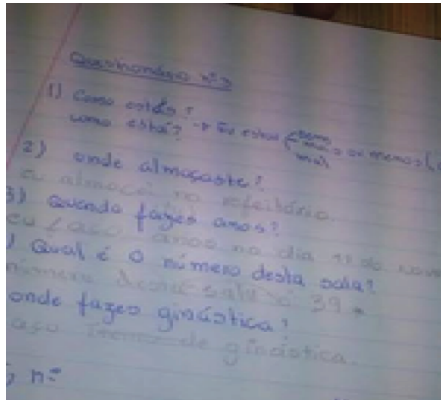 Questionário nº 3
1) Como estás? → Eu estou (bem, mais ou menos,
como está? mal,
2) onde almoçaste?
eu almoce no refeitório
3) Quando fazes anos?
eu faço anos no dia 11 do
) Qual é o número desta sala?
número desta sala é 39.
onde fazes ginástica?
aço de ginástica.
, nº